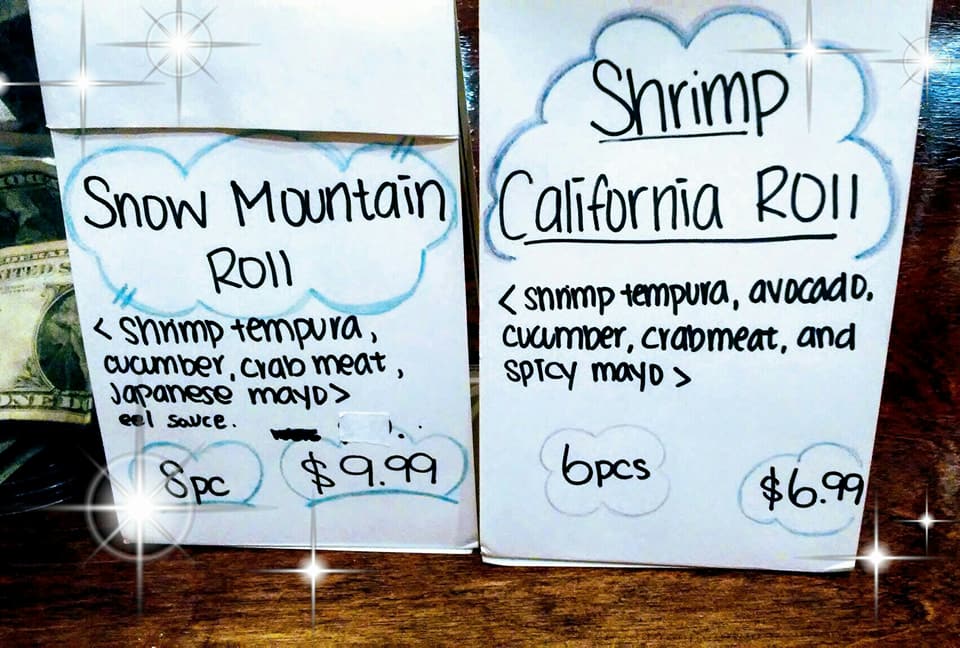 Snow Mountain
Roll
< shrimp tempura,
cucumber, crab meat,
Japanese mayo>
eel sauce.
8pc
$9.99
Shrimp
California Roll
< shrimp tempura, avocado,
cucumber, crabmeat, and
spicy mayo >
6pcs
$6.99